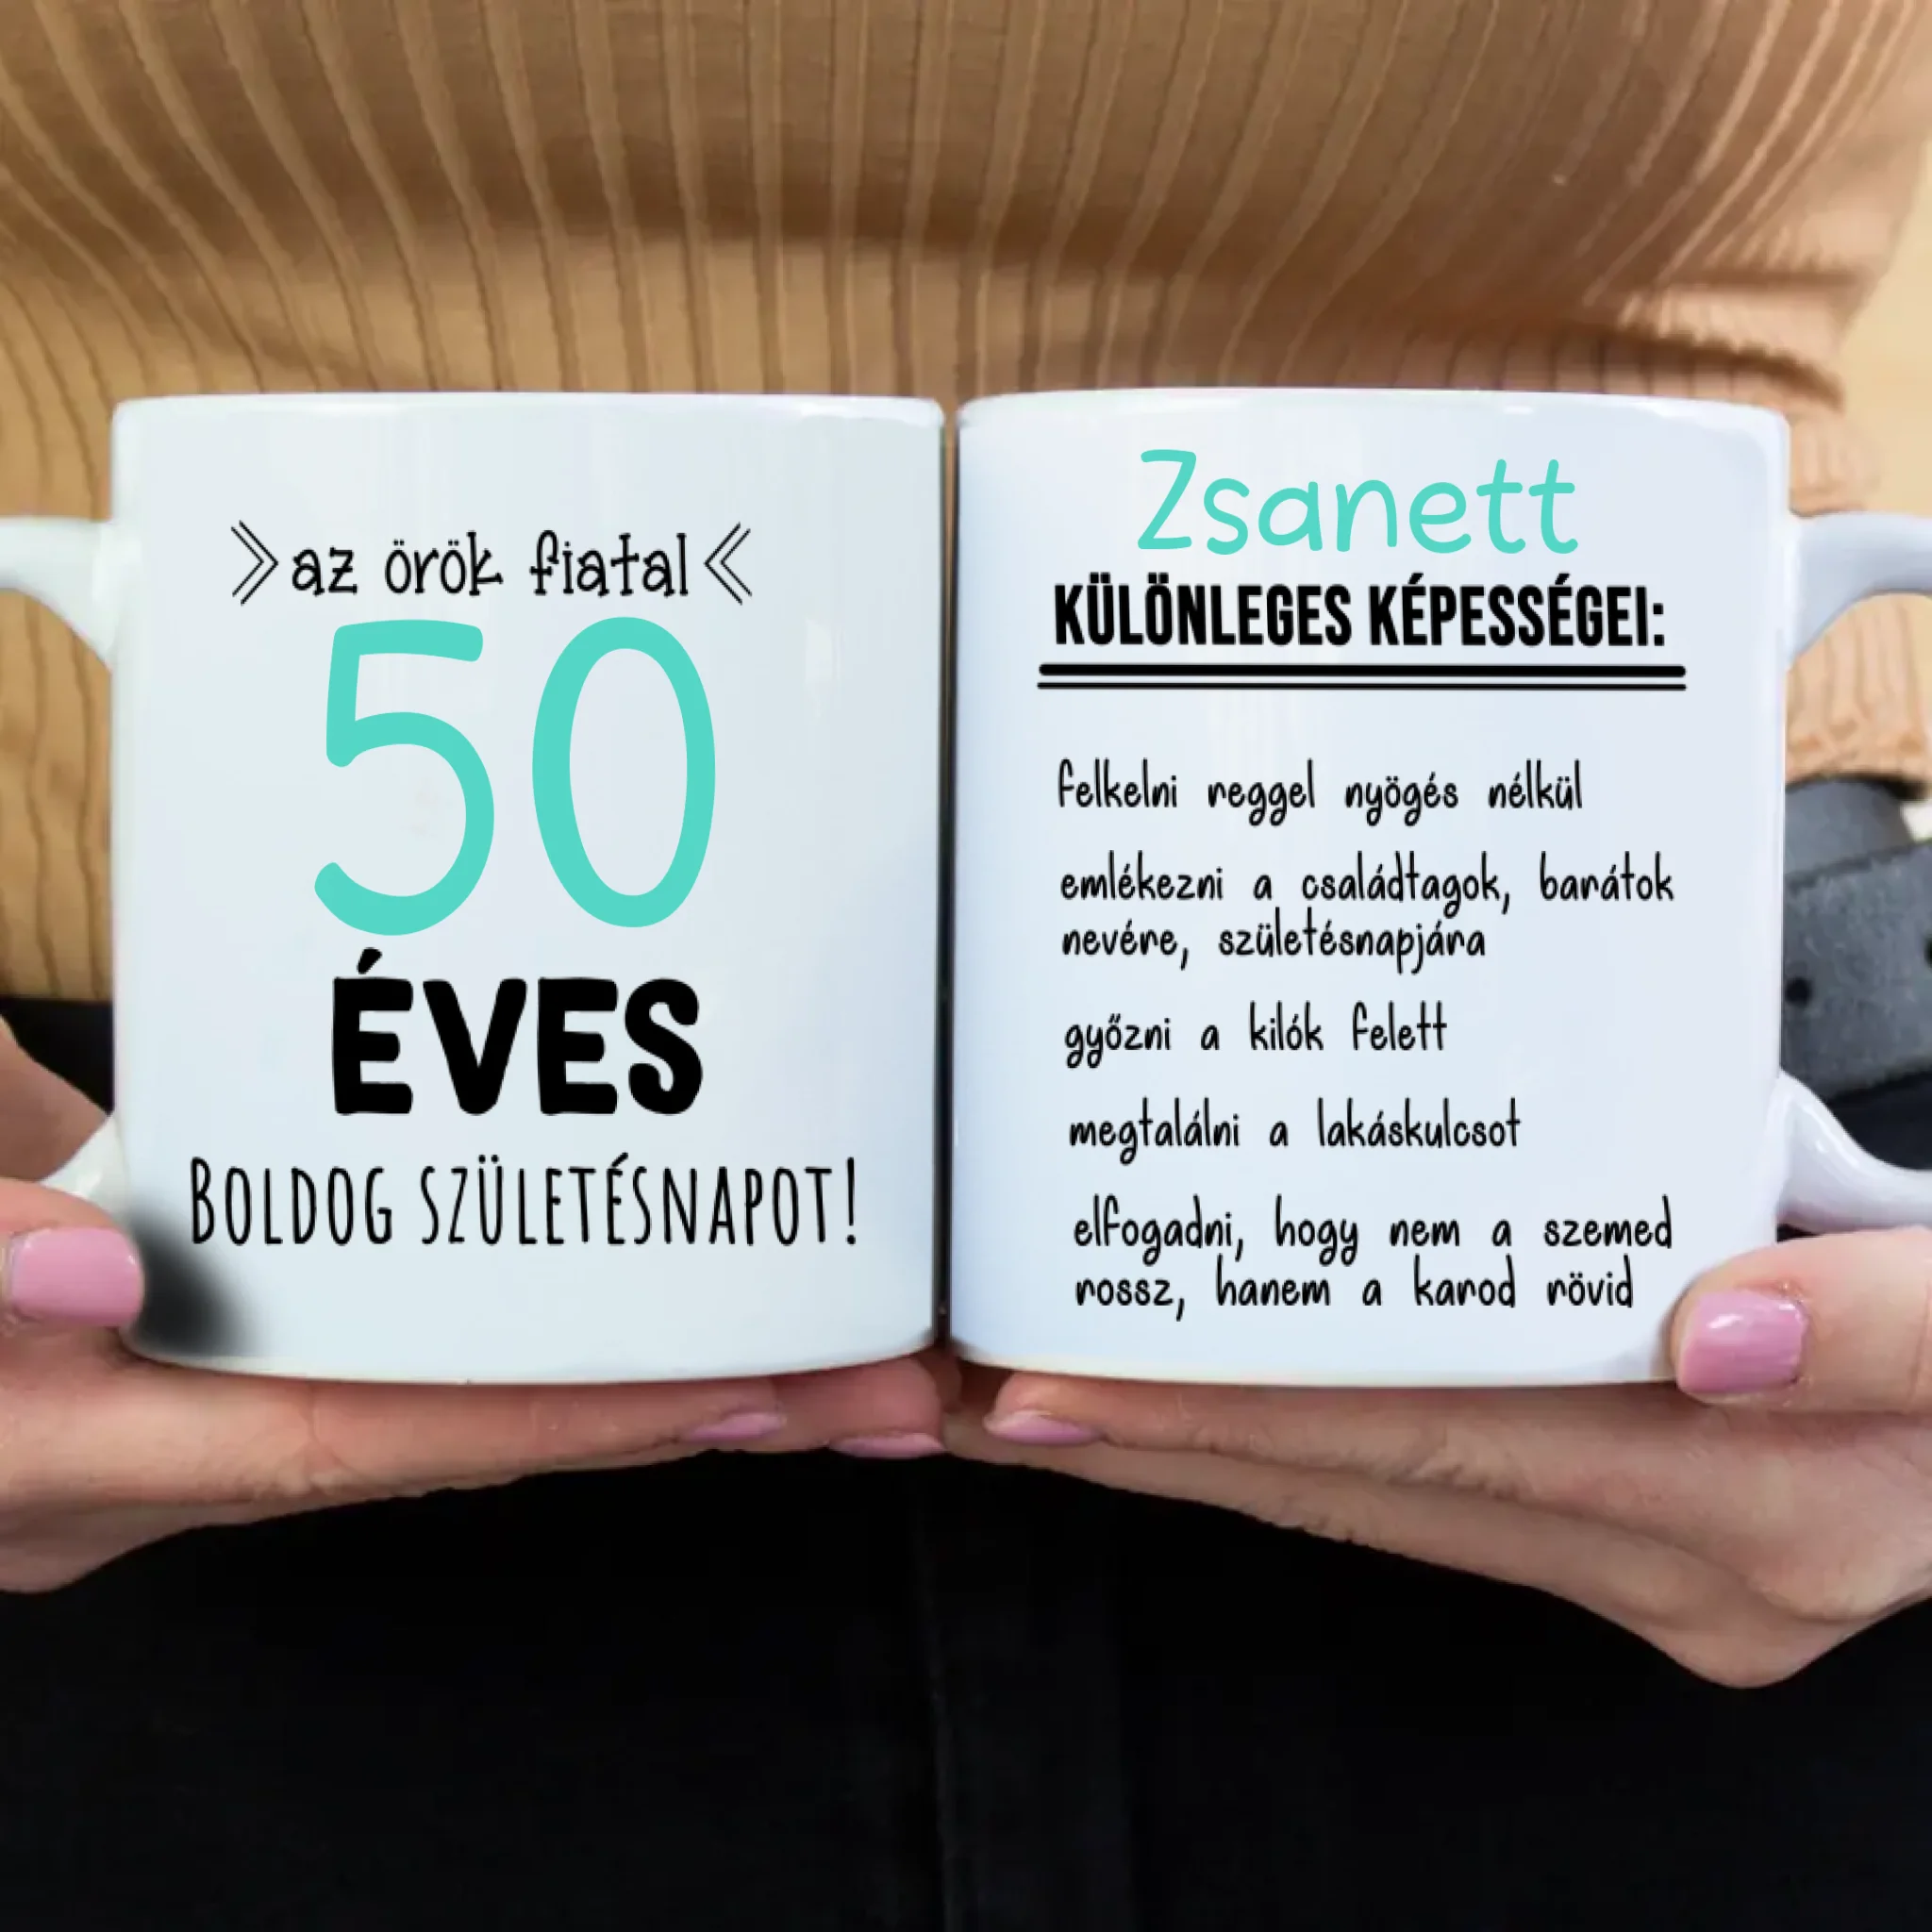 »az örök fiatal«
50
ÉVES
BOLDOG SZÜLETÉSNAPOT!
Zsanett
KÜLÖNLEGES KÉPESSÉGEI:
felkelni reggel nyögés nélkül
emlékezni a családtagok, barátok
nevére, születésnapjára
győzni a kilók felett
megtalálni a lakáskulcsot
elfogadni, hogy nem a szemed
rossz, hanem a karod rövid